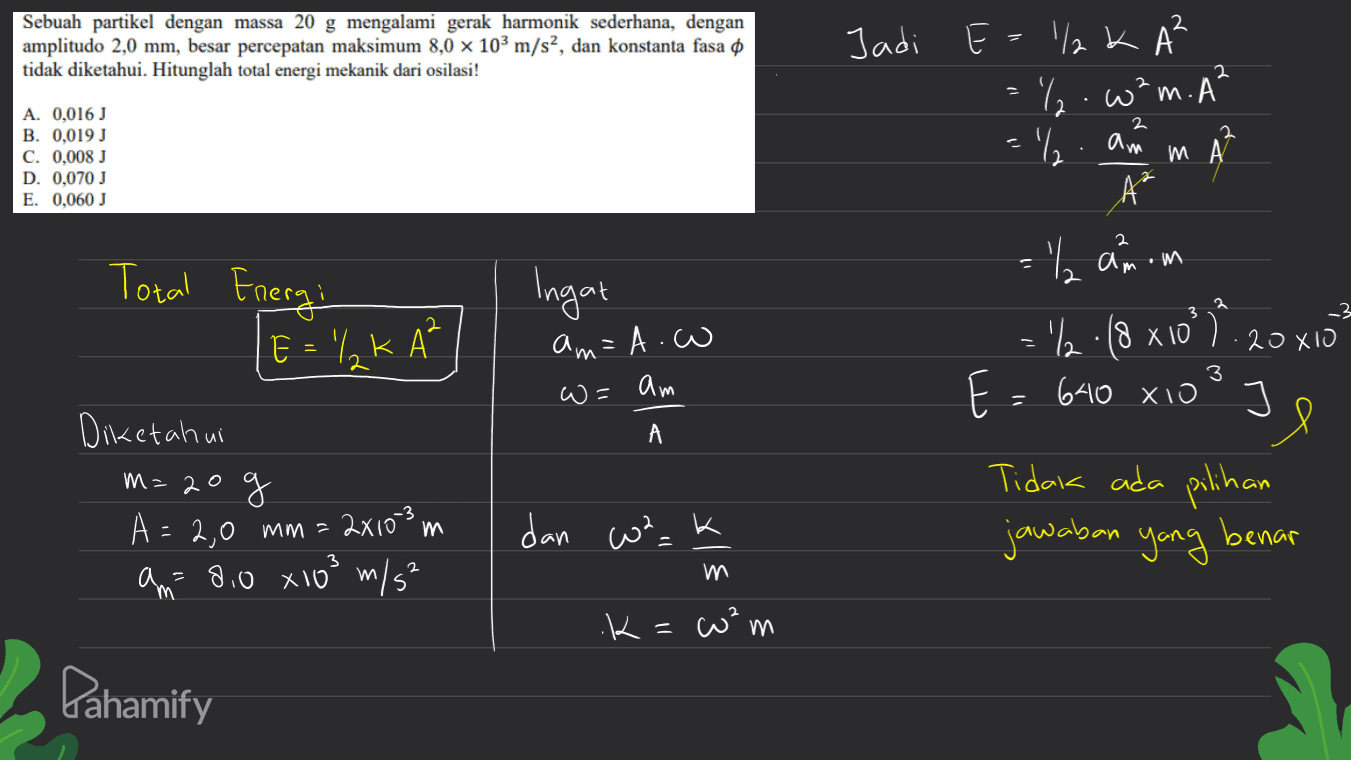 Sebuah partikel dengan massa 20 g mengalami gerak harmonik sederhana, dengan
amplitudo 2,0 mm, besar percepatan maksimum 8,0 × 10³ m/s², dan konstanta fasa ϕ
tidak diketahui. Hitunglah total energi mekanik dari osilasi!
A. 0,016 J
B. 0,019 J
C. 0,008 J
D. 0,070 J
E. 0,060 J
Total Energi
E = 1/2 k A²
Diketahui
m = 20 g
A = 2,0 mm = 2x10⁻³ m
aₘ = 8,0 x10³ m/s²
Ingat
aₘ = A . ω
ω = aₘ / A
dan ω² = k / m
.k = ω² m
Jadi E = 1/2 k A²
= 1/2 . ω² m . A²
= 1/2 . aₘ² / A² m A²
= 1/2 aₘ² . m
= 1/2 . (8 x10³)² . 20 x10⁻³
E = 640 x10³ J
Tidak ada pilihan
jawaban yang benar
Pahamify